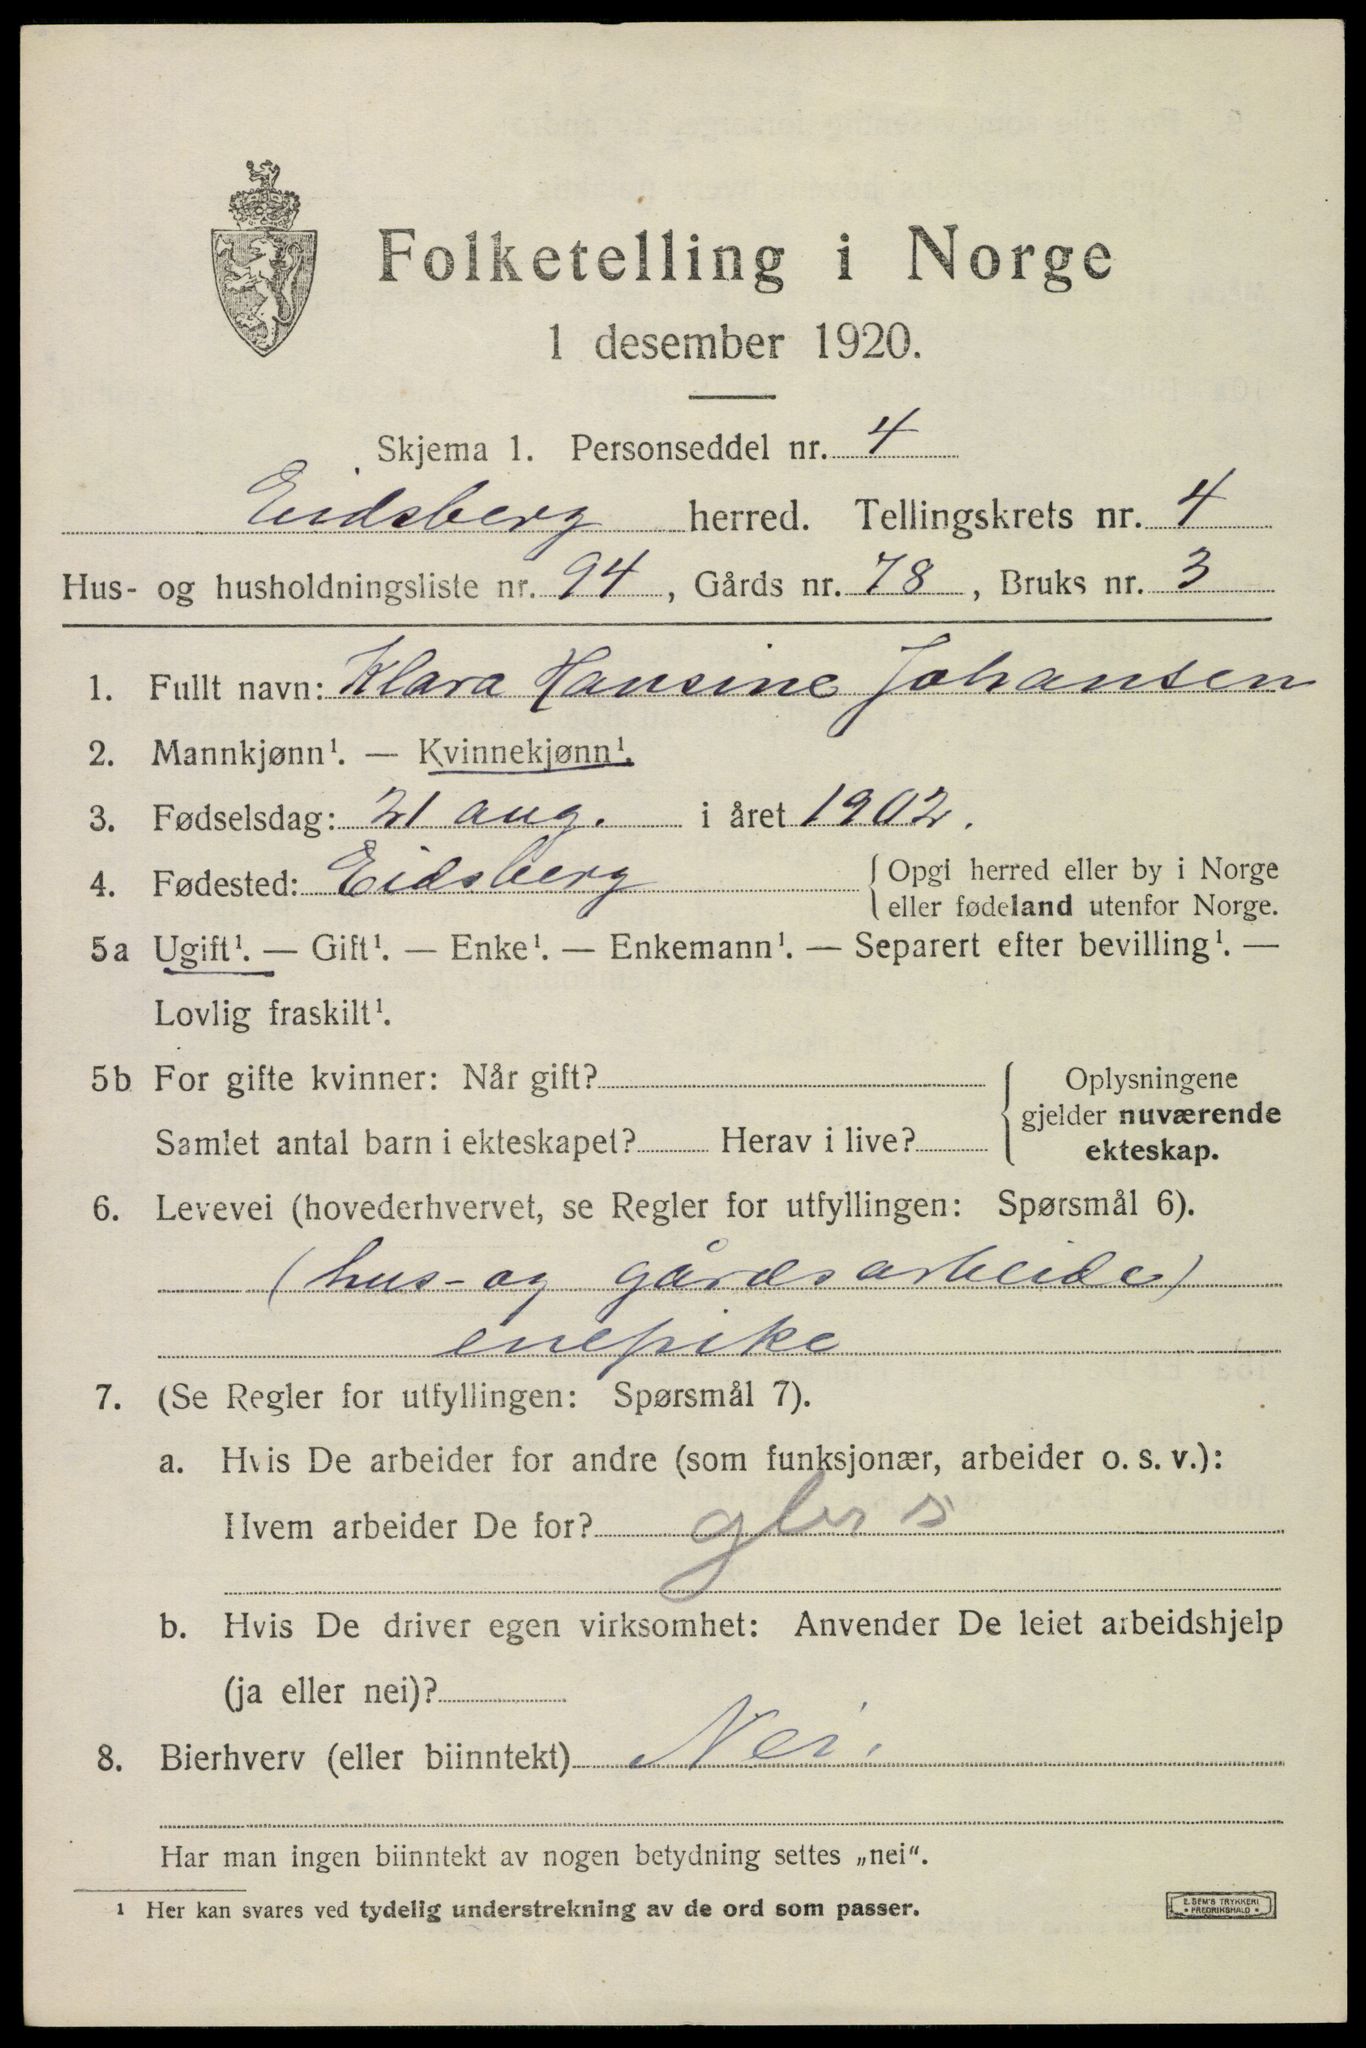 Folketelling i Norge
1 desember 1920.
Skjema 1. Personseddel nr. 4
Eidsberg herred. Tellingskrets nr. 4
Hus- og husholdningsliste nr. 94, Gårds nr. 78, Bruks nr. 3
1. Fullt navn: Klara Hansine Johansen
2. Mannkjønn¹. — Kvinnekjønn¹.
3. Fødselsdag: 21 aug. i året 1902.
4. Fødested: Eidsberg { Opgi herred eller by i Norge
eller fødeland utenfor Norge.
5a Ugift¹. — Gift¹. — Enke¹. — Enkemann¹. — Separert efter bevilling¹. —
Lovlig fraskilt¹.
5b For gifte kvinner: Når gift? { Oplysningene
gjelder nuværende
Samlet antal barn i ekteskapet? Herav i live?
ekteskap.
6. Levevei (hovederhvervet, se Regler for utfyllingen: Spørsmål 6).
(hus- og gårdsarbeide)
enepike
7. (Se Regler for utfyllingen: Spørsmål 7).
a. Hvis De arbeider for andre (som funksjonær, arbeider o. s. v.):
Hvem arbeider De for?
b. Hvis De driver egen virksomhet: Anvender De leiet arbeidshjelp
(ja eller nei)?
8. Bierhverv (eller biinntekt) Nei.
Har man ingen biinntekt av nogen betydning settes „nei“.
¹ Her kan svares ved tydelig understrekning av de ord som passer.
E. SEM'S TRYKKERI
* FREDRIKSHALD *